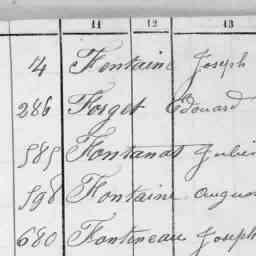 11 12 13
4 Fontaine Joseph
286 Forget Edouard
585 Fontanat Julie
598 Fontaine Augus
680 Fontineau Joseph